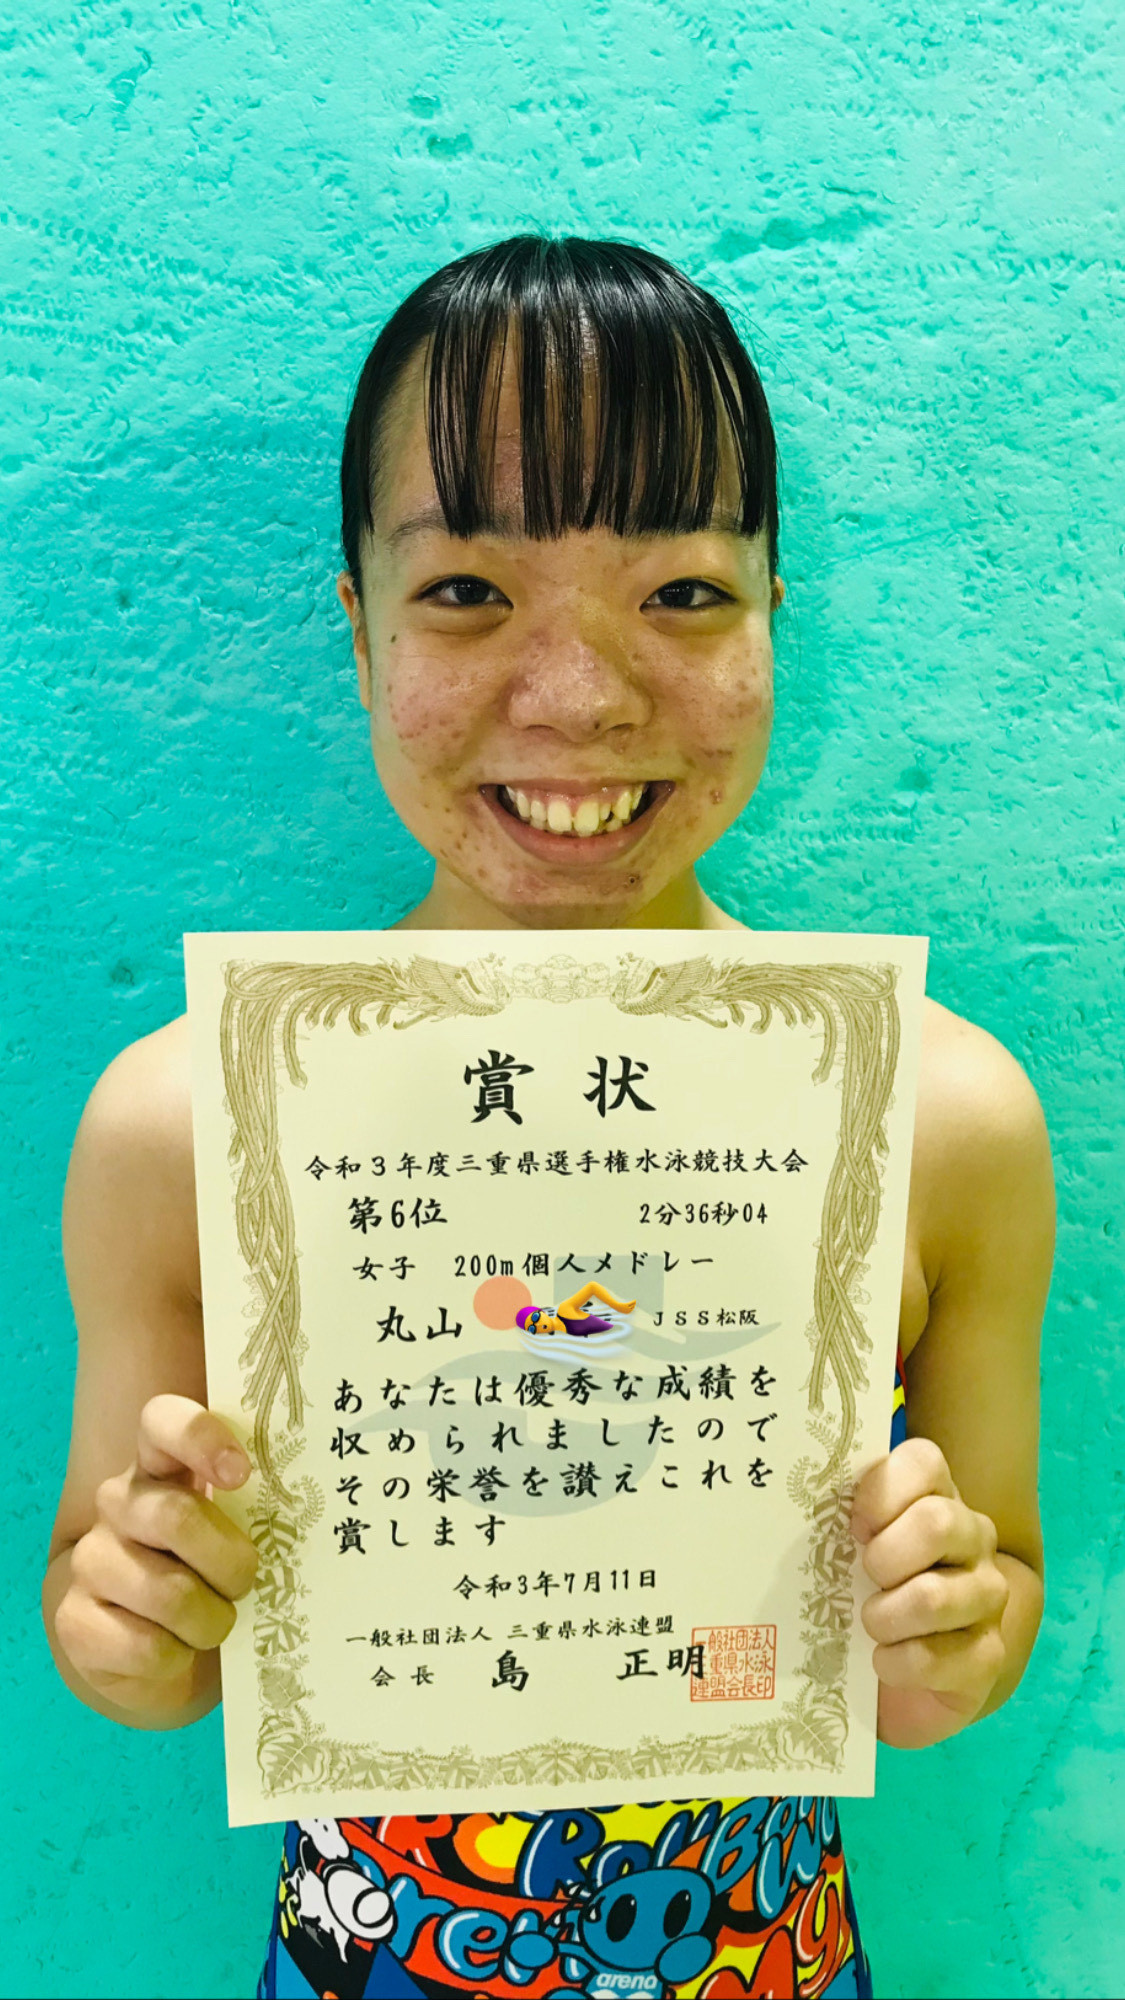 賞状
令和3年度三重県選手権水泳競技大会
第6位 2分36秒04
女子 200m個人メドレー
丸山 JSS松阪
あなたは優秀な成績を
収められましたので
その栄誉を讃えこれを
賞します
令和3年7月11日
一般社団法人 三重県水泳連盟
会長 島 正明
一般社団法人
三重県水泳
連盟会長印
arena